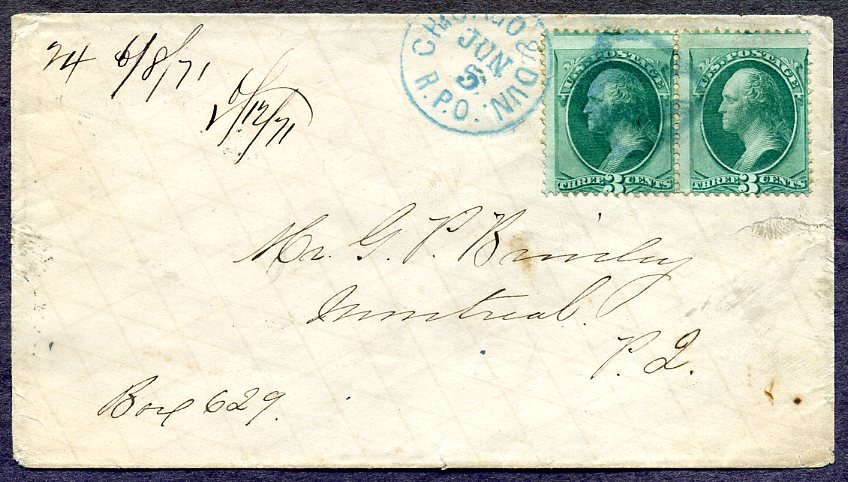 24 6/8/71
6/12/71
CHICAGO & DUN.
JUN
5
R.P.O.
U.S. POSTAGE
THREE 3 CENTS
U.S. POSTAGE
THREE 3 CENTS
Mr. G. P. Brinley
Montreal.
P. Q.
Box 629.